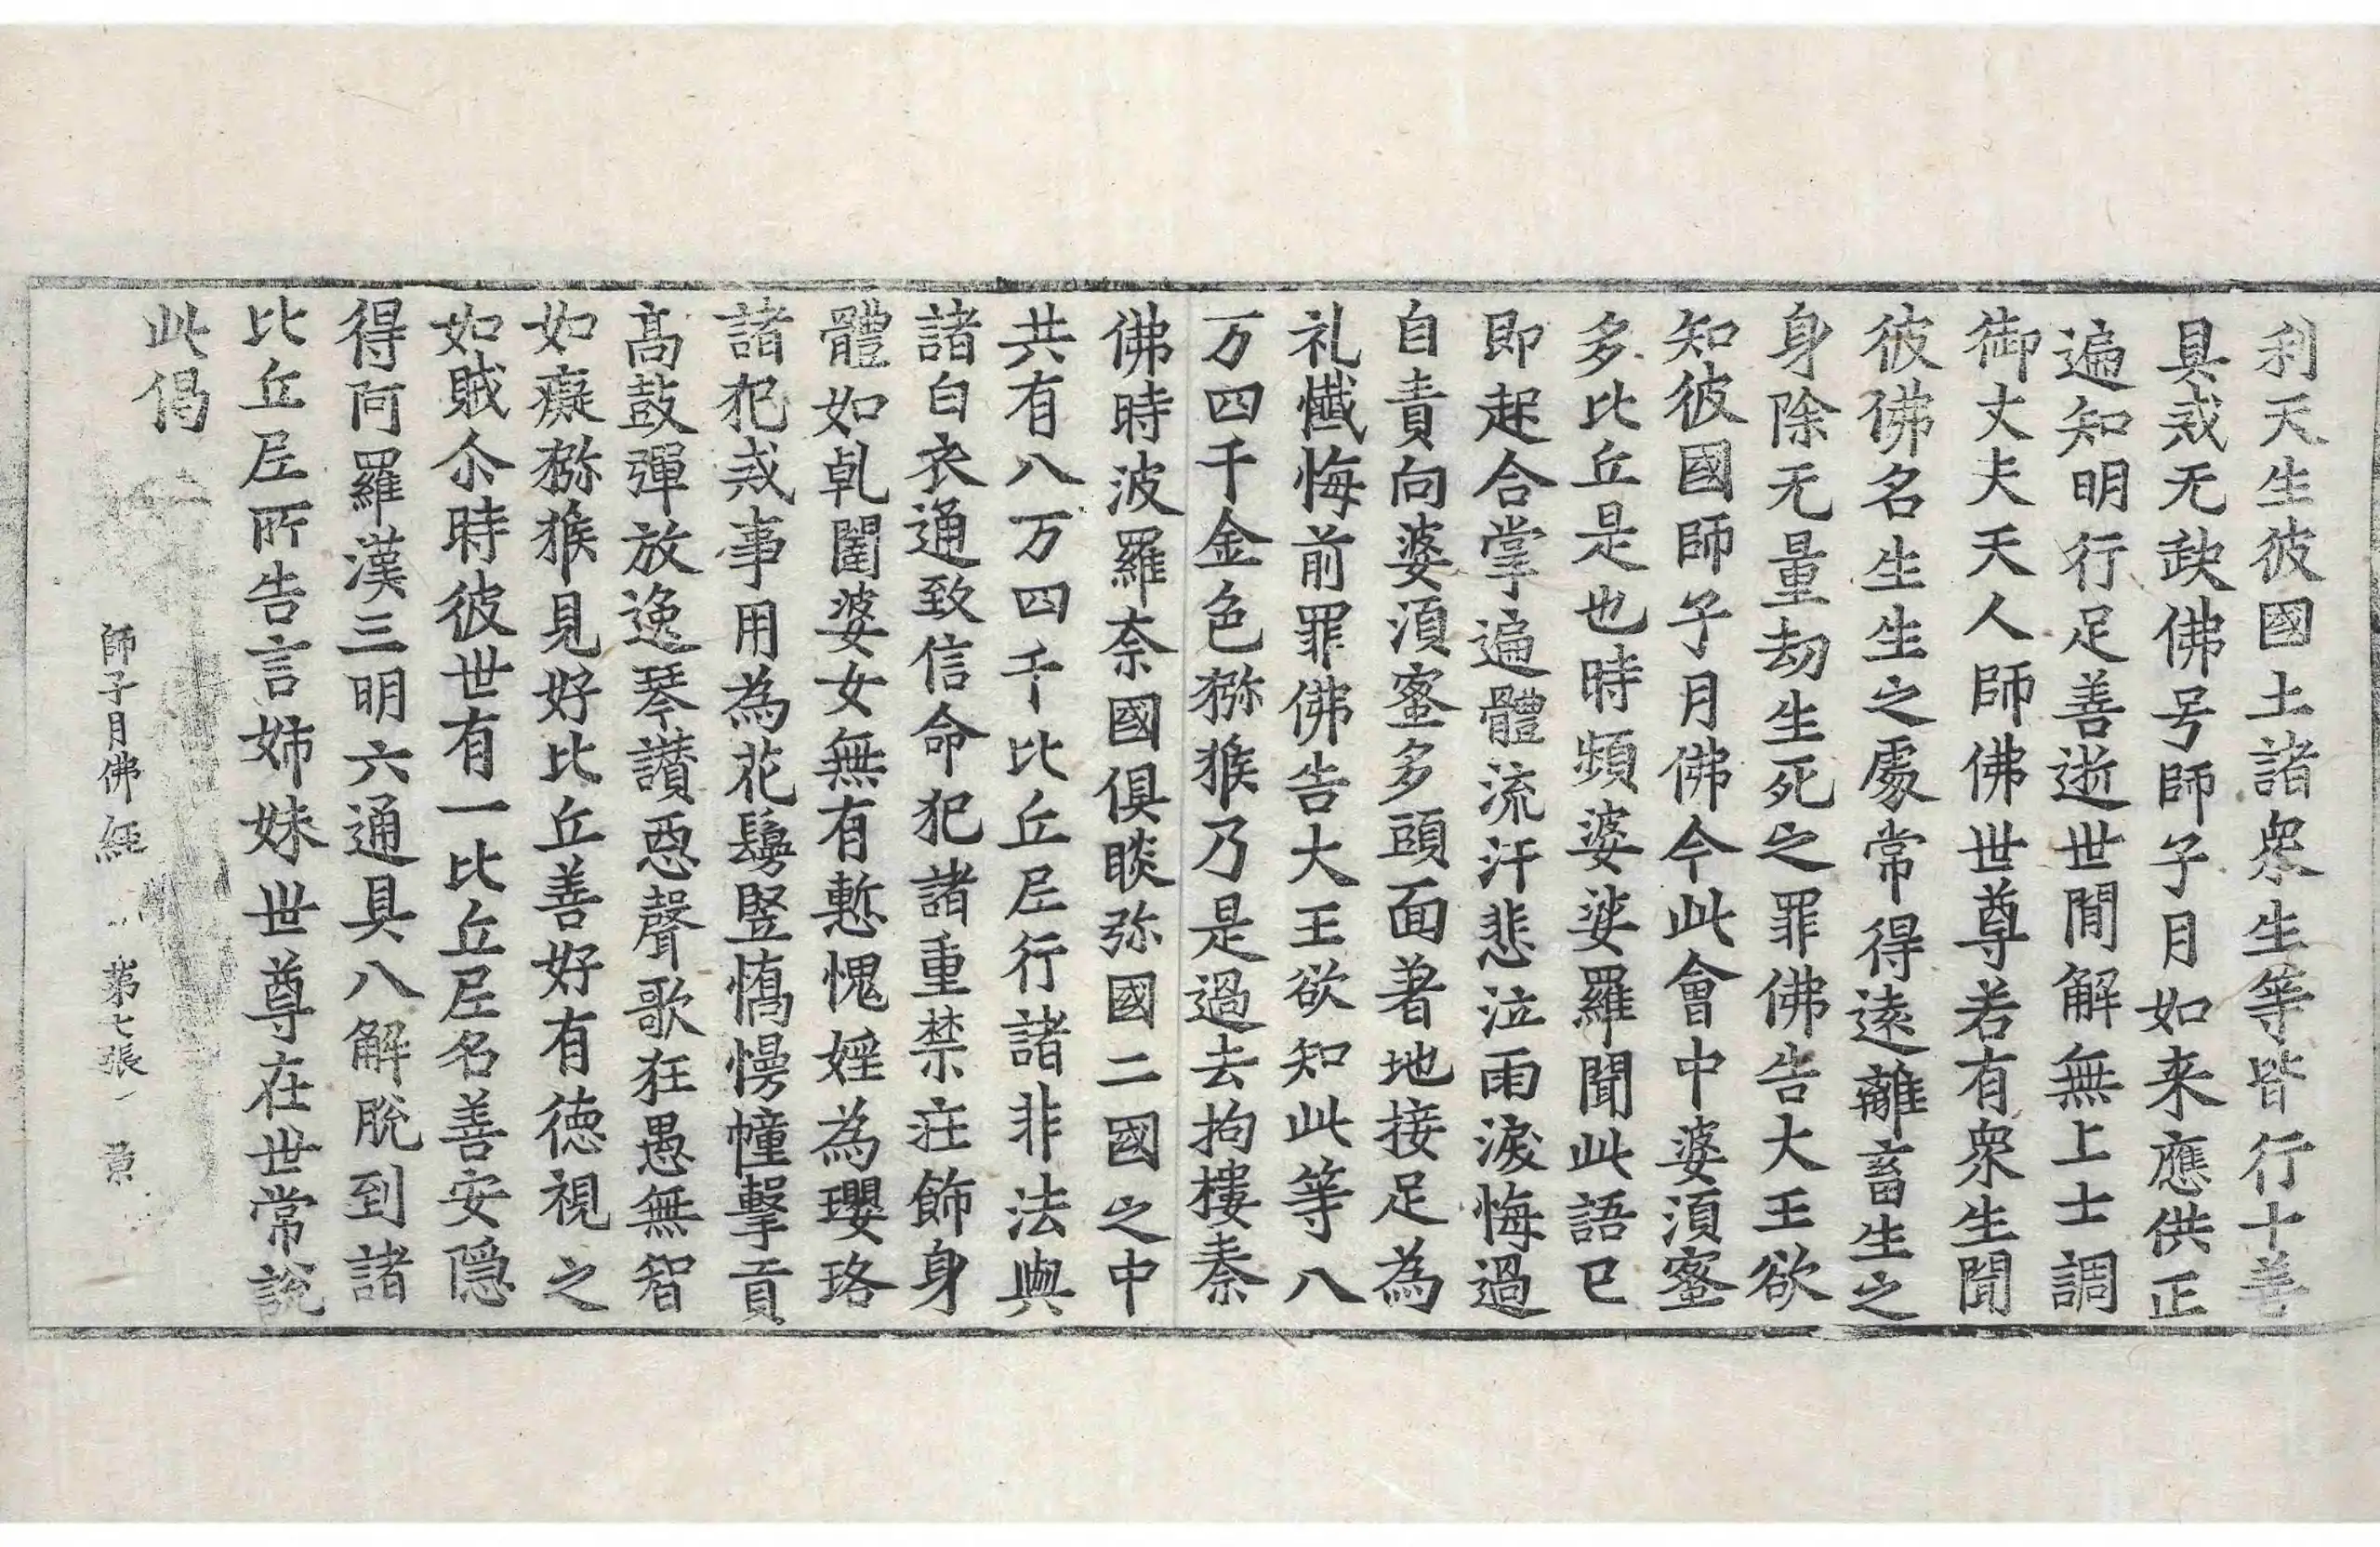 利天生彼國土諸衆生等皆行十善
具戒无缺佛号師子月如来應供正
遍知明行足善逝世閒解無上士調
御丈夫天人師佛世尊若有衆生聞
彼佛名生生之處常得遠離畜生之
身除无量劫生死之罪佛告大王欲
知彼國師子月佛今此會中婆湏蜜
多比丘是也時頻婆娑羅聞此語已
即起合掌遍體流汗悲泣雨淚悔過
自責向婆湏蜜多頭面著地接足為
礼懺悔前罪佛告大王欲知此等八
万四千金色猕猴乃是過去拘樓秦
佛時波羅奈國俱睒弥國二國之中
共有八万四千比丘尼行諸非法與
諸白衣通致信命犯諸重禁莊飾身
體如乹闥婆女無有慙愧婬為瓔珞
諸犯戒事用為花鬘竪憍慢幢擊貢
高鼓彈放逸琴讃惡聲歌狂愚無智
如癡猕猴見好比丘善好有徳視之
如賊尒時彼世有一比丘尼名善安隱
得阿羅漢三明六通具八解脫到諸
比丘尼所告言姉妹世尊在世常說
此偈
師子月佛經 第七張